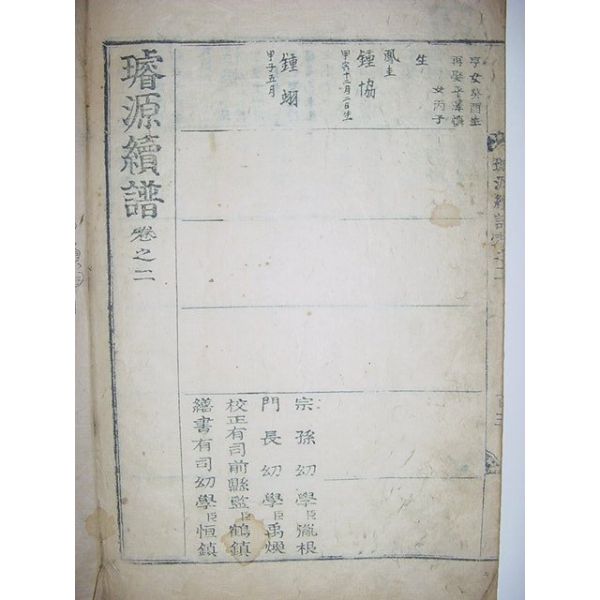 亨女癸酉生
再娶
女丙子
生
鳳圭
鍾協
甲寅十二月二日生
鍾翊
甲子五月
宗孫幼學臣胤根
門長幼學臣禹燠
校正有司前縣監臣鶴鎭
繕書有司幼學臣恒鎭
璿源續譜卷之二
璿源續譜